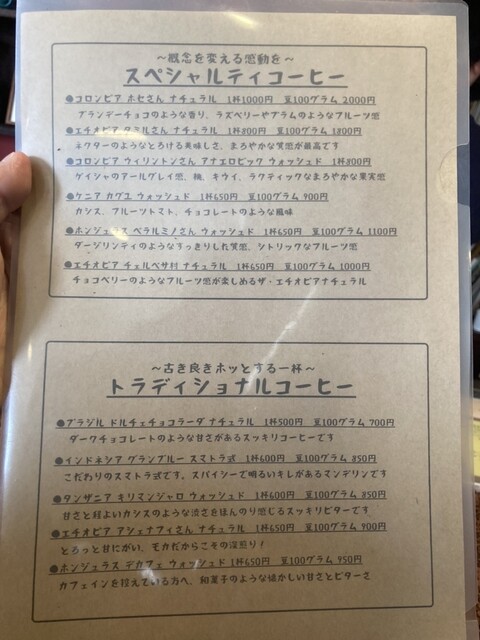 ～概念を変える感動を～
スペシャルティコーヒー
●コロンビア ホセさん ナチュラル 1杯1000円 豆100グラム 2000円
ブランデーチョコのような香り、ラズベリーやプラムのようなフルーツ感
●エチオピア タミルさん ナチュラル 1杯800円 豆100グラム 1800円
ネクターのようなとろける美味しさ、まろやかな質感が最高です
●コロンビア ウィリントンさん アナエロビック ウォッシュド 1杯800円
ゲイシャのアールグレイ感、桃、キウイ、ラクティックなまろやかな果実感
●ケニア カグユ ウォッシュド 1杯650円 豆100グラム 900円
カシス、フルーツトマト、チョコレートのような風味
●ホンジュラス ベラルミノさん ウォッシュド 1杯650円 豆100グラム 1100円
ダージリンティのようなすっきりした質感、シトリックなフルーツ感
●エチオピア チェルベサ村 ナチュラル 1杯650円 豆100グラム 1000円
チョコベリーのようなフルーツ感が楽しめるザ・エチオピアナチュラル
～古き良きホッとする一杯～
トラディショナルコーヒー
●ブラジル ドルチェチョコラーダ ナチュラル 1杯500円 豆100グラム 700円
ダークチョコレートのような甘さがあるスッキリコーヒーです
●インドネシア グランブルー スマトラ式 1杯600円 豆100グラム 850円
こだわりのスマトラ式です。スパイシーで明るいキレがあるマンデリンです
●タンザニア キリマンジャロ ウォッシュド 1杯600円 豆100グラム 850円
甘さと程よいカシスのような渋さをほんのり感じるスッキリビターです
●エチオピア アシェナフィさん ナチュラル 1杯650円 豆100グラム 900円
とろっと甘にがい、モカだからこその深煎り！
●ホンジュラス デカフェ ウォッシュド 1杯650円 豆100グラム 950円
カフェインを控えている方へ、和菓子のような懐かしい甘さとビターさ